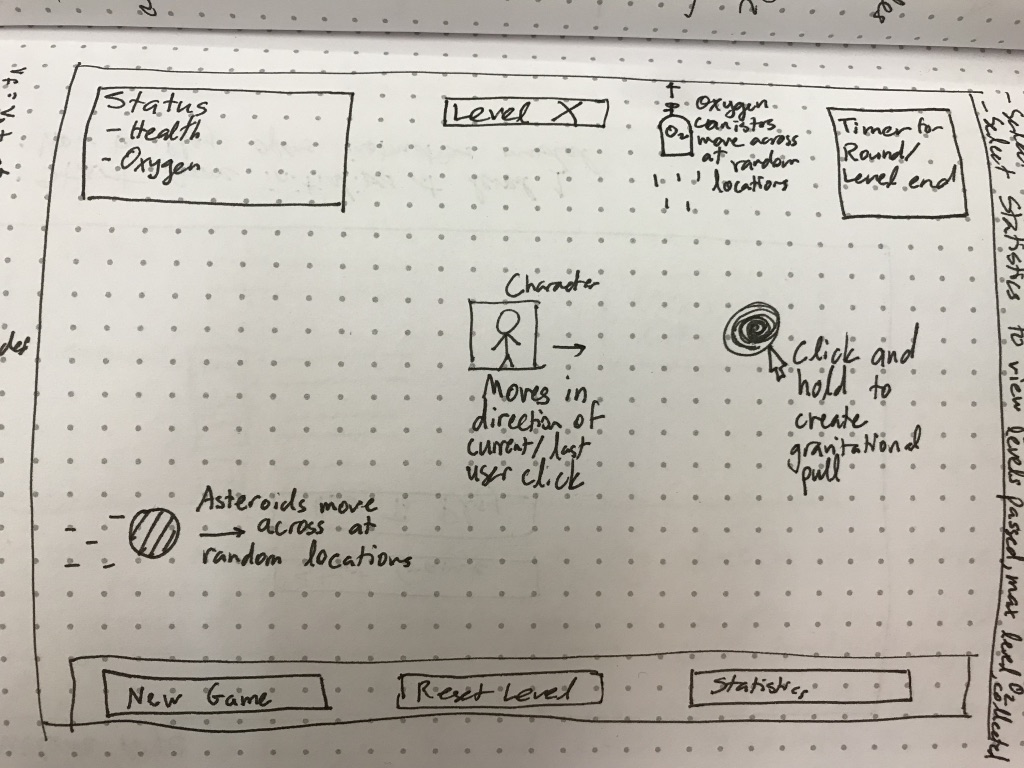 Status
- Health
- Oxygen
Level X
O2
Oxygen
Canistrs
move across
at random
locations
Timer for
Round/
Level end
Character
Moves in
direction of
current/last
user click
Click and
hold to
create
gravitational
pull
Asteroids move
across at
random locations
New Game
Reset Level
Statistics
- Select Statistics to view levels passed, max level, O2 collected